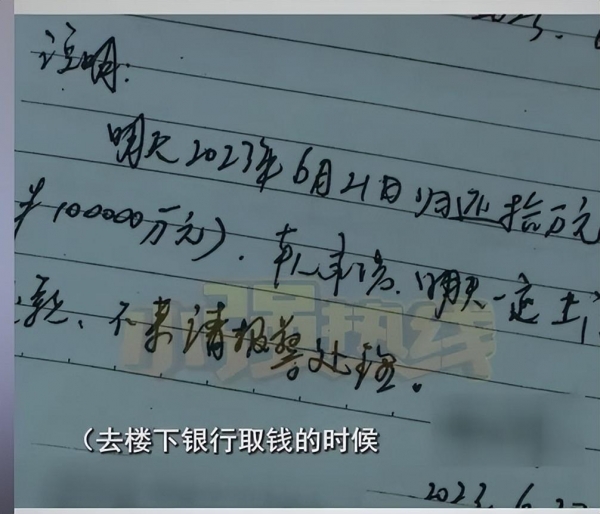 2023.
说明:
明天2023年6月21日归还拾万元
100000万元). 本人承诺. 明天一定上
款、不来请报警处理。
小强热线
(去楼下银行取钱的时候
2023. 6.